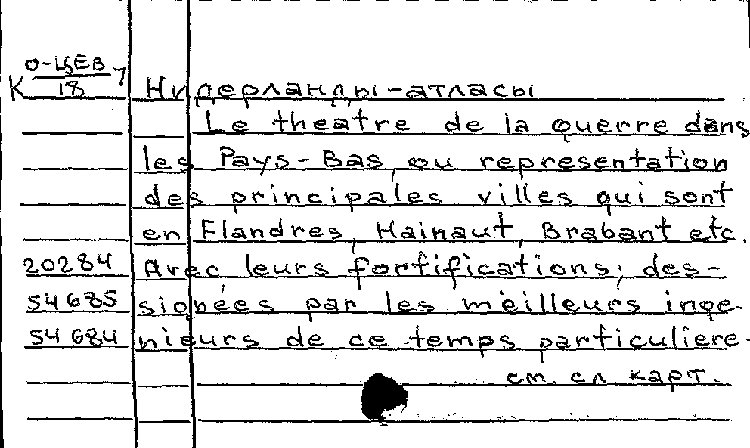 К О-ЦЕВ 7
18
Нидерланды-атласы
Le theatre de la querre dans
les Pays-Bas, ou representation
des principales villes qui sont
en Flandres, Hainaut, Brabant etc.
20284 Avec leurs fortifications; des-
54685 sionees par les meilleurs inge-
54684 nieurs de ce temps particuliere-
см. сл карт.